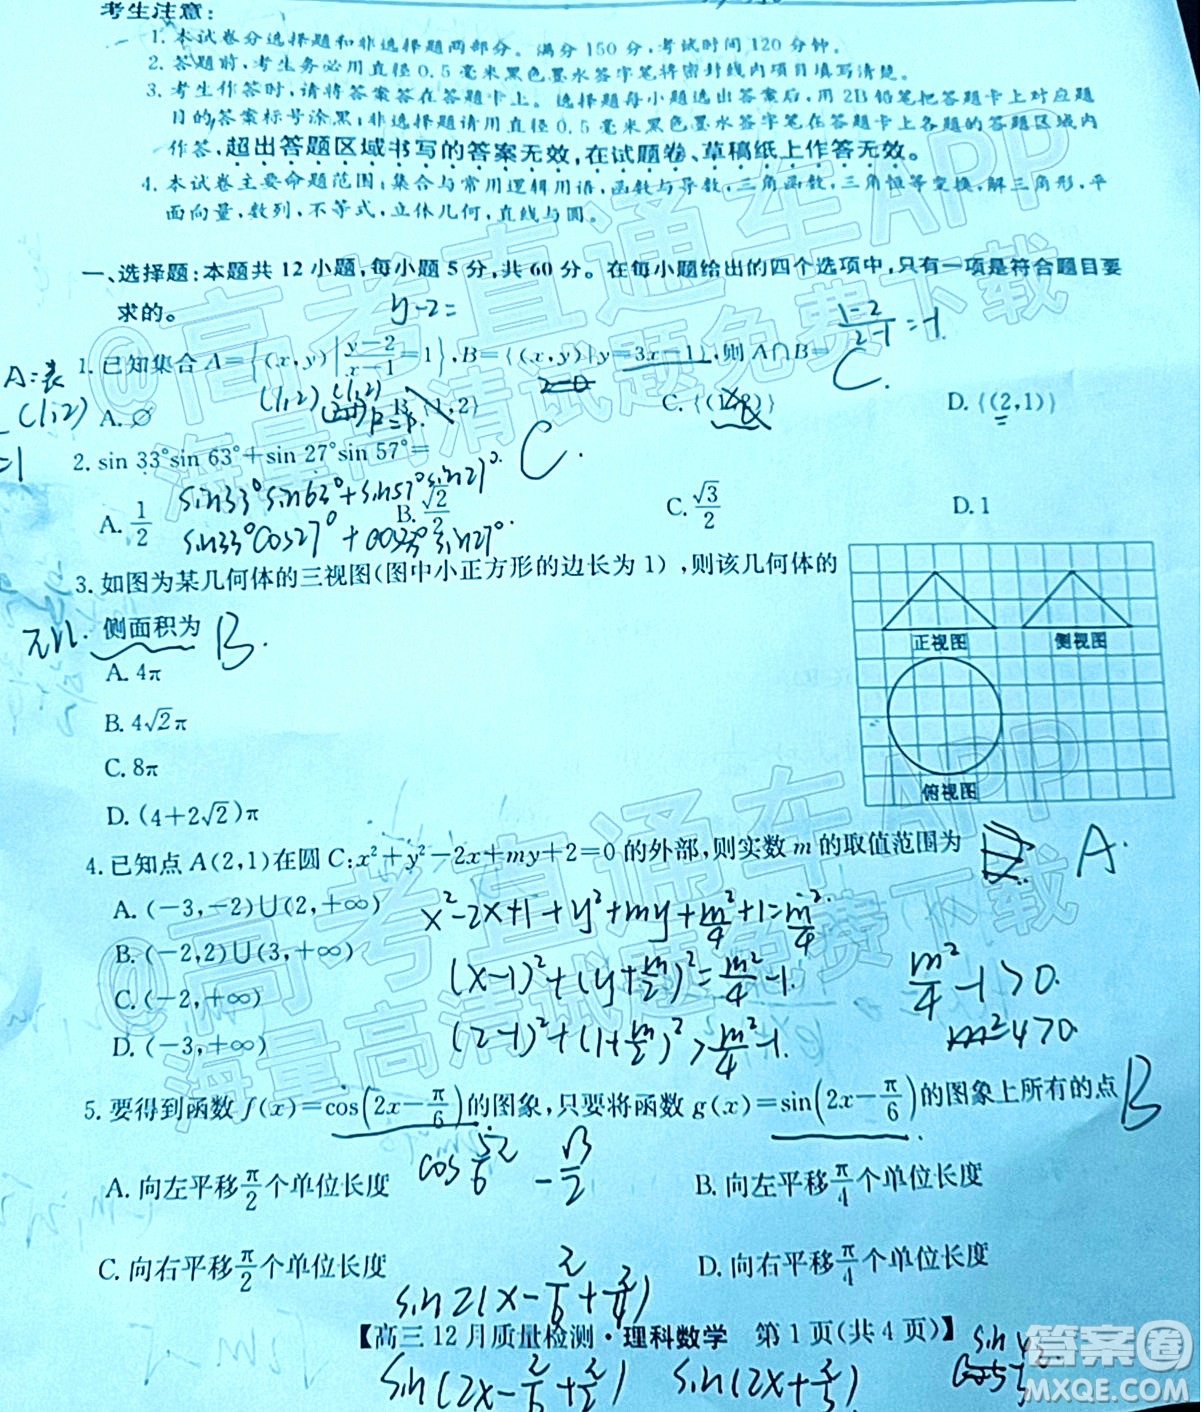 考生注意:
1. 本试卷分选择题和非选择题两部分。满分150分,考试时间120分钟。
2. 答题前,考生务必用直径0.5毫米黑色墨水签字笔将密封线内项目填写清楚。
3. 考生作答时,请将答案答在答题卡上。选择题每小题选出答案后,用2B铅笔把答题卡上对应题
目的答案标号涂黑;非选择题请用直径0.5毫米黑色墨水签字笔在答题卡上各题的答题区域内
作答,超出答题区域书写的答案无效,在试题卷、草稿纸上作答无效。
4. 本试卷主要命题范围:集合与常用逻辑用语,函数与导数,三角函数,三角恒等变换,解三角形,平
面向量,数列,不等式,立体几何,直线与圆。
一、选择题:本题共12小题,每小题5分,共60分。在每小题给出的四个选项中,只有一项是符合题目要
求的。
y-2=
(1-2)/(2-1)=-1
1. 已知集合A={(x,y)|(y-2)/(x-1)=1},B={(x,y)|y=3x-1},则A∩B=
C.
A:表
(1,2)
(1,2) (1,2)
A. ∅ B. {1,2} C. {(1,2)} D. {(2,1)}
2. sin 33°sin 63°+sin 27°sin 57°=
C.
sin33°sin63°+sin57°sin27°
A. 1/2 B. √2/2 C. √3/2 D. 1
sin33°cos27°+cos33°sin27°
3. 如图为某几何体的三视图(图中小正方形的边长为1),则该几何体的
侧面积为
πrl.
B.
A. 4π
B. 4√2π
C. 8π
D. (4+2√2)π
正视图 侧视图
俯视图
4. 已知点A(2,1)在圆C:x²+y²-2x+my+2=0的外部,则实数m的取值范围为
A.
A. (-3,-2)∪(2,+∞)
B. (-2,2)∪(3,+∞)
C. (-2,+∞)
D. (-3,+∞)
x²-2x+1+y²+my+m²/4+1=m²/4
(x-1)²+(y+m/2)²=m²/4-1.
(2-1)²+(1+m/2)²>m²/4-1.
m²/4-1>0.
m²-4>0.
5. 要得到函数f(x)=cos(2x-π/6)的图象,只要将函数g(x)=sin(2x-π/6)的图象上所有的点
B
A. 向左平移π/2个单位长度 B. 向左平移π/4个单位长度
C. 向右平移π/2个单位长度 D. 向右平移π/4个单位长度
cos 5π/6 -√3/2
sin2(x-π/6+π/4)
【高三12月质量检测·理科数学 第1页(共4页)】
sin(2x-π/6+π/2) sin(2x+π/3)
@高考直通车APP
海量高清试题免费下载
@高考直通车APP
海量高清试题免费下载
答案圈
MXQE.COM